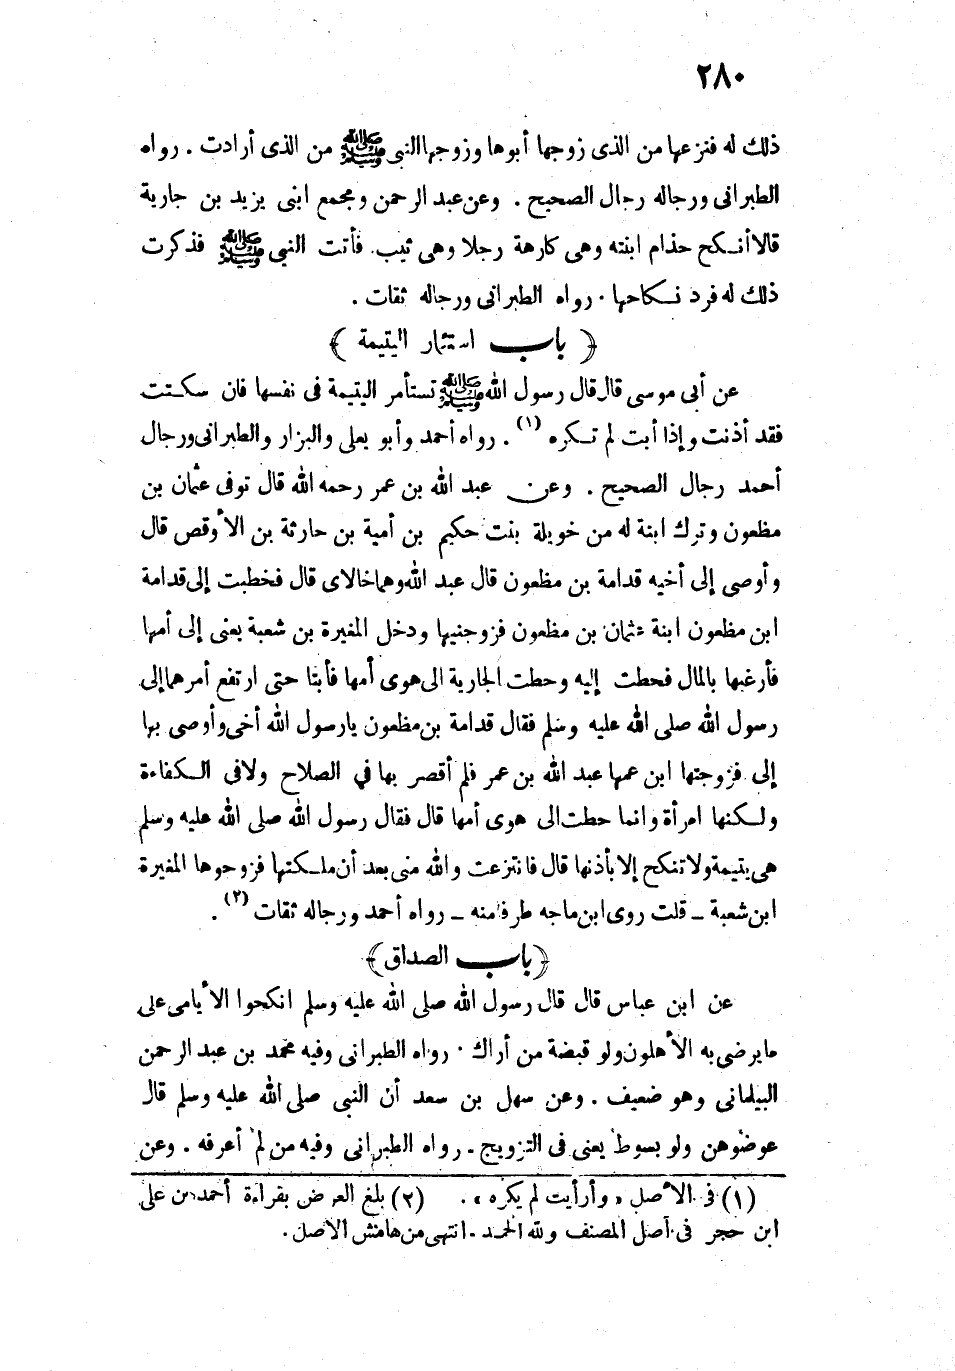 ٢٨٠
ذلك له فنزعها من الذى زوجها أبوها وزوجها النبى ﷺ من الذى أرادت . رواه
الطبرانى ورجاله رجال الصحيح . وعن عبد الرحمن ومجمع ابنى يزيد بن جارية
قالا أنكح حذام ابنته وهى كارهة رجلا وهى ثيب فأتت النبى ﷺ فذكرت
ذلك له فرد نكاحها . رواه الطبرانى ورجاله ثقات .
﴿ باب استئمار اليتيمة ﴾
عن أبى موسى قال قال رسول الله ﷺ تستأمر اليتيمة فى نفسها فان سكتت
فقد أذنت وإذا أبت لم تكره (١) . رواه أحمد وأبو يعلى والبزار والطبرانى ورجال
أحمد رجال الصحيح . وعن عبد الله بن عمر رحمه الله قال توفى عثمان بن
مظعون وترك ابنة له من خويلة بنت حكيم بن أمية بن حارثة بن الأوقص قال
وأوصى إلى أخيه قدامة بن مظعون قال عبد الله وهما خالاى قال فخطبت إلى قدامة
ابن مظعون ابنة عثمان بن مظعون فزوجنيها ودخل المغيرة بن شعبة يعنى إلى أمها
فأرغبها بالمال فحطت إليه وحطت الجارية الى هوى أمها فأبتا حتى ارتفع أمرهما إلى
رسول الله صلى الله عليه وسلم فقال قدامة بن مظعون يارسول الله أخى وأوصى بها
إلى فزوجتها ابن عمها عبد الله بن عمر فلم أقصر بها في الصلاح ولا فى الكفاءة
ولكنها امرأة وانما حطت الى هوى أمها قال فقال رسول الله صلى الله عليه وسلم
هى يتيمة ولا تنكح إلا بأذنها قال فانتزعت والله منى بعد أن ملكتها فزوجوها المغيرة
ابن شعبة ــ قلت روى ابن ماجه طرفا منه ــ رواه أحمد ورجاله ثقات (٢) .
﴿ باب الصداق ﴾
عن ابن عباس قال قال رسول الله صلى الله عليه وسلم انكحوا الأيامى على
ما يرضى به الأهلون ولو قبضة من أراك . رواه الطبرانى وفيه محمد بن عبد الرحمن
البيلمانى وهو ضعيف . وعن سهل بن سعد أن النبى صلى الله عليه وسلم قال
عوضوهن ولو بسوط يعنى فى التزويج . رواه الطبرانى وفيه من لم أعرفه . وعن
(١) فى الأصل « وأرأيت لم يكره » . (٢) بلغ العرض بقراءة أحمد بن على
ابن حجر فى أصل المصنف ولله الحمد . انتهى من هامش الأصل .